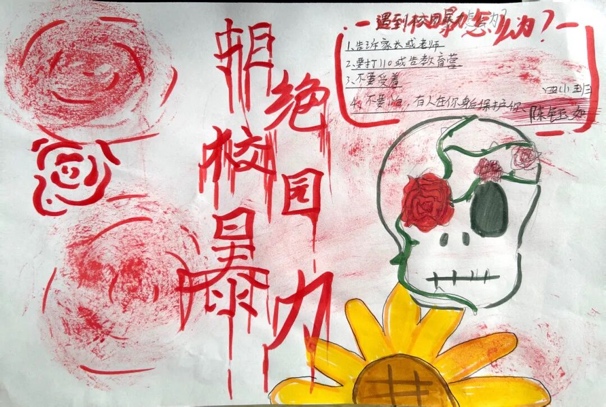 拒绝
校园
暴力
遇到校园暴力怎么办?
1、告诉家长或老师
2、要打110或告教育营
3、不要忍着
4、不要怕，有人在你身后保护你